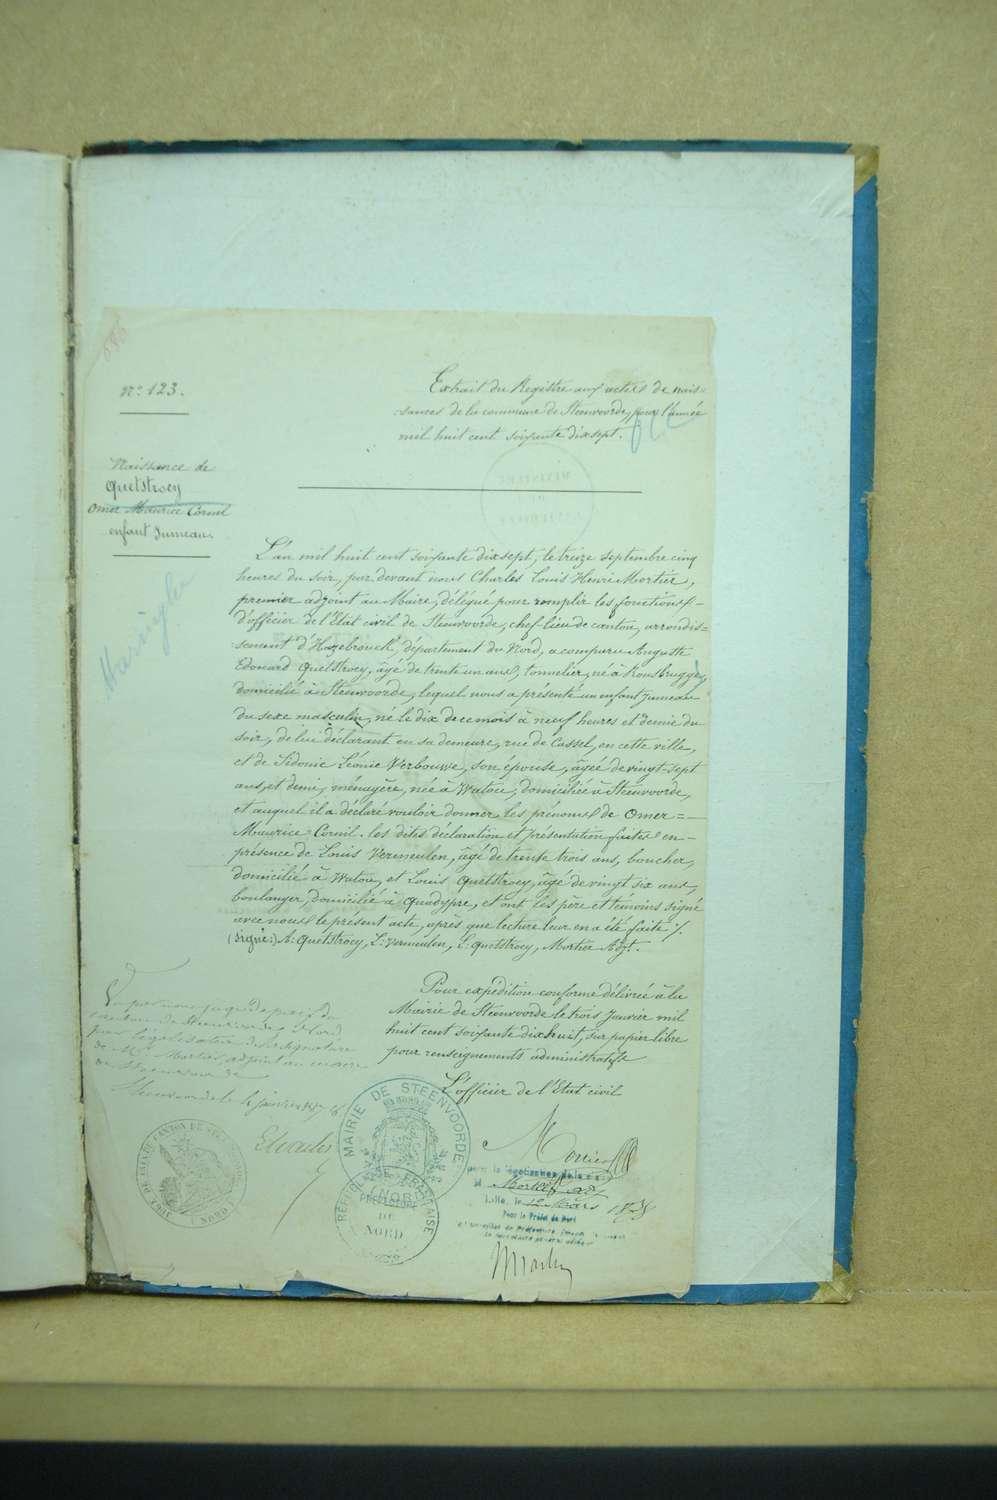 N° 123.
Extrait du Registre aux actes de nais-
sances de la commune de Steenvoorde, pour l'année
mil huit cent soixante dix sept.
Naissance de
Quetstroey
Omer Maurice Cornil
enfant Jumeau.
L'an mil huit cent soixante dix sept, le treize septembre cinq
heures du soir, par devant nous Charles Louis Henri Mortier,
premier adjoint au Maire, délégué pour remplir les fonctions
d'officier de l'Etat civil de Steenvoorde, chef-lieu de canton, arrondis=
sement d'Hazebrouck, département du Nord, a comparu Auguste
Edouard Quetstroey, âgé de trente un ans, tonnelier, né à Rousbrugge,
domicilié à Steenvoorde, lequel nous a présenté un enfant Jumeau
du sexe masculin, né le dix de ce mois à neuf heures et demie du
soir, de lui déclarant en sa demeure, rue de Cassel, en cette ville,
et de Sidonie Léonie Verbouwe, son épouse, âgée de vingt-sept
ans et demi, ménagère, née à Watou, domiciliée à Steenvoorde,
et auquel il a déclaré vouloir donner les prénoms de Omer=
Maurice Cornil. les dites déclaration et présentation faites en-
présence de Louis Vermeulen, âgé de trente trois ans, boucher,
domicilié à Watou, et Louis Quetstroey, âgé de vingt six ans,
boulanger, domicilié à Quadypre, et ont les père et témoins signé
avec nous le présent acte, après que lecture leur en a été faite /.
(signé:) A. Quetstroey, L. Vermeulen, L. Quetstroey, Mortier Adjt.
Pour expédition conforme délivrée à la
Mairie de Steenvoorde le trois Janvier mil
huit cent soixante dix huit, sur papier libre
pour renseignements administratifs
L'officier de l'Etat civil
Vu par nous juge de paix du
canton de Steenvoorde, Nord
pour légalisation de la signature
de Mr Mortier, adjoint au maire
de Steenvoorde
Steenvoorde le janvier 1878
MAIRIE DE STEENVOORDE
NORD
RÉPUBLIQUE FRANÇAISE
PRÉFECTURE
DU
NORD
Mortier
pour la légalisation de la
M. Mortier
Lille, le 12 Mars 1878
Pour le Préfet du Nord